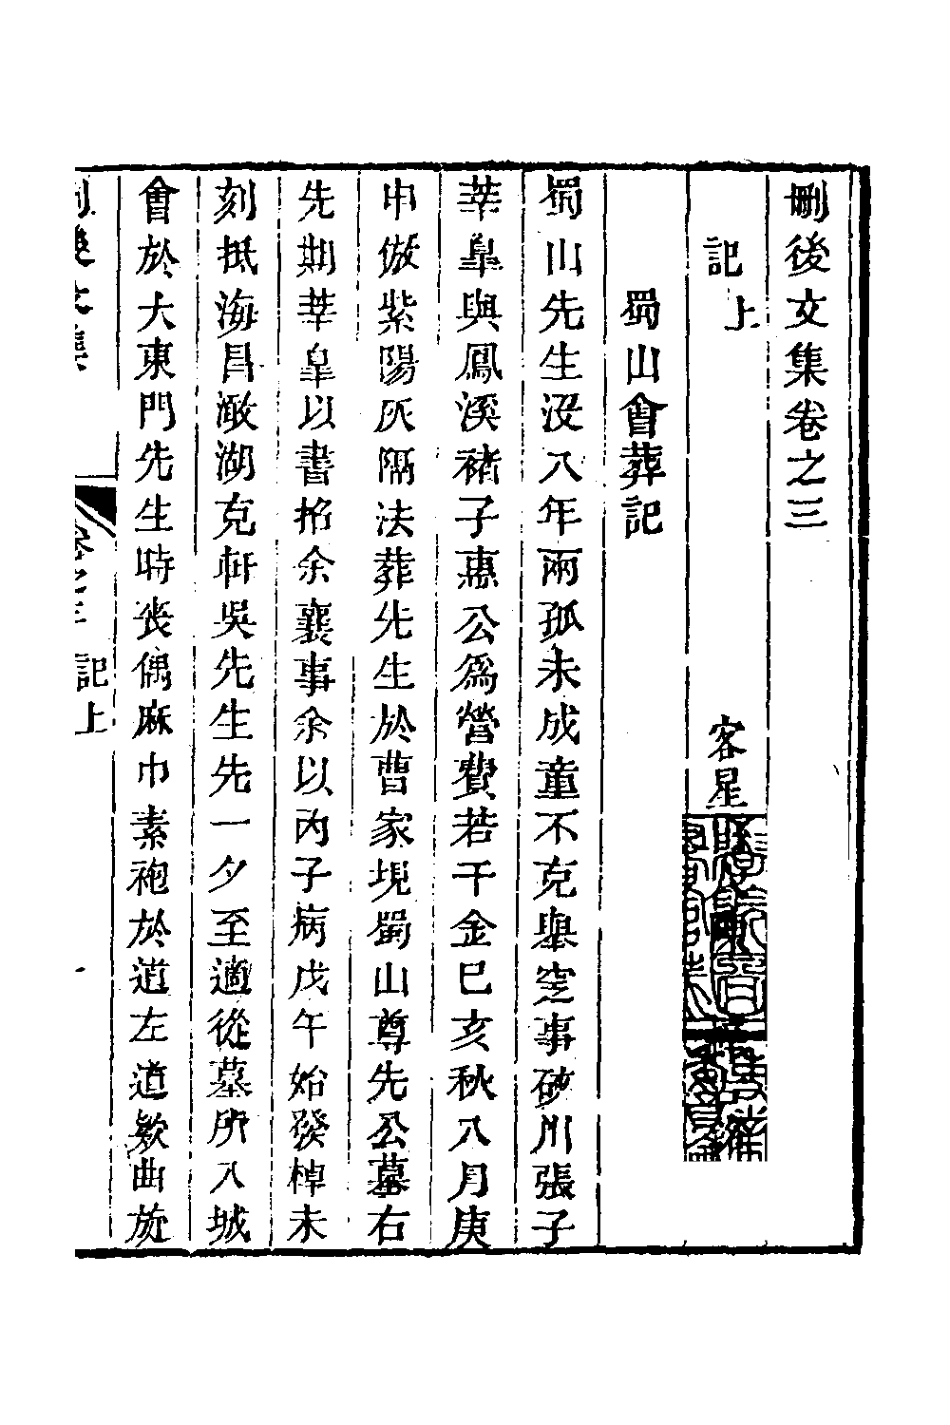 刪後文集卷之三
記上
客星
蜀山會葬記
蜀山先生没八年兩孤未成童不克舉窆事硤川張子
莘臯與鳳溪禇子惪公爲營費若干金巳亥秋八月庚
申倣紫陽灰隔法葬先生於曹家堄蜀山尊先公墓右
先期莘臯以書招余襄事余以丙子病戊午始發棹未
刻抵海昌澉湖克軒吳先生先一夕至適從墓所入城
會於大東門先生時喪偶麻巾素袍於道左道欵曲旋
刪後文集
卷之三 記上